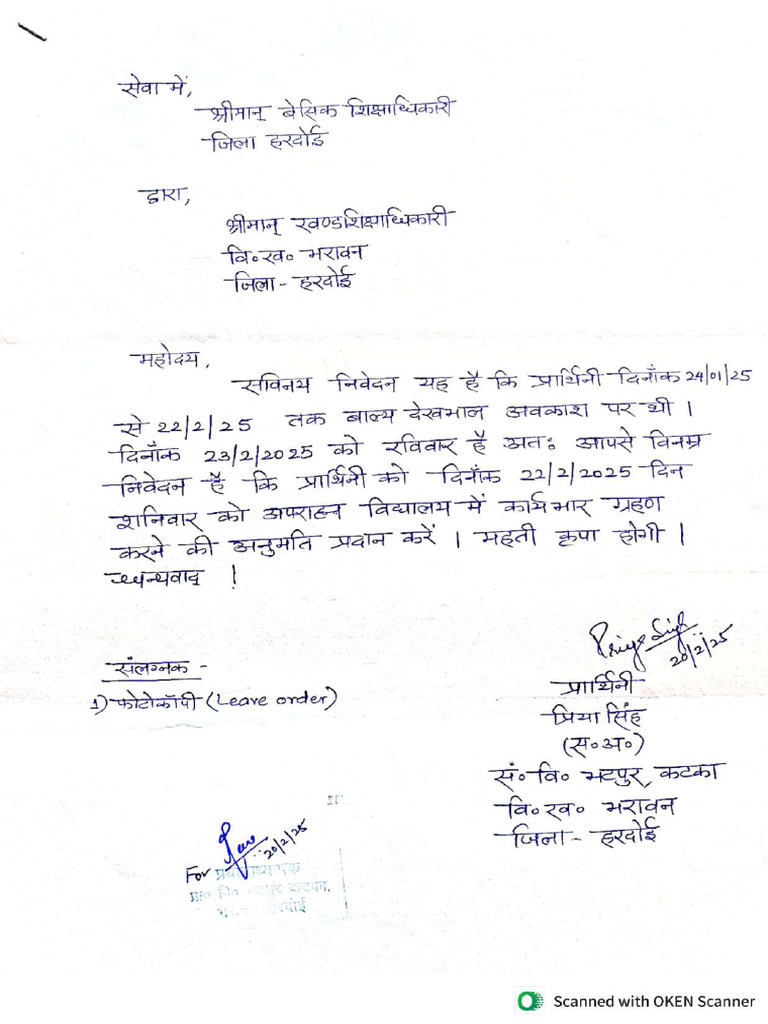 सेवा में,
श्रीमान् बेसिक शिक्षाधिकारी
जिला हरदोई
द्वारा,
श्रीमान् खण्डशिक्षाधिकारी
वि॰ख॰ भरावन
जिला - हरदोई
महोदय,
सविनय निवेदन यह है कि प्रार्थिनी दिनाँक 24/01/25
से 22/2/25 तक बाल्य देखभाल अवकाश पर थी ।
दिनाँक 23/2/2025 को रविवार है अतः आपसे विनम्र
निवेदन है कि प्रार्थिनी को दिनाँक 22/2/2025 दिन
शनिवार को अपराह्न विद्यालय में कार्यभार ग्रहण
करने की अनुमति प्रदान करें । महती कृपा होगी ।
धन्यवाद् !
Priya Singh
20/2/25
संलग्नक -
1) फोटोकॉपी (Leave order)
प्रार्थिनी
प्रिया सिंह
(स॰अ॰)
सं॰ वि॰ भटपुर, कटका
वि॰ख॰ भरावन
जिला - हरदोई
20/2/25
For प्रधानाध्यापक
प्रा० वि० भटपुर कटका,
भरावन हरदोई
Scanned with OKEN Scanner